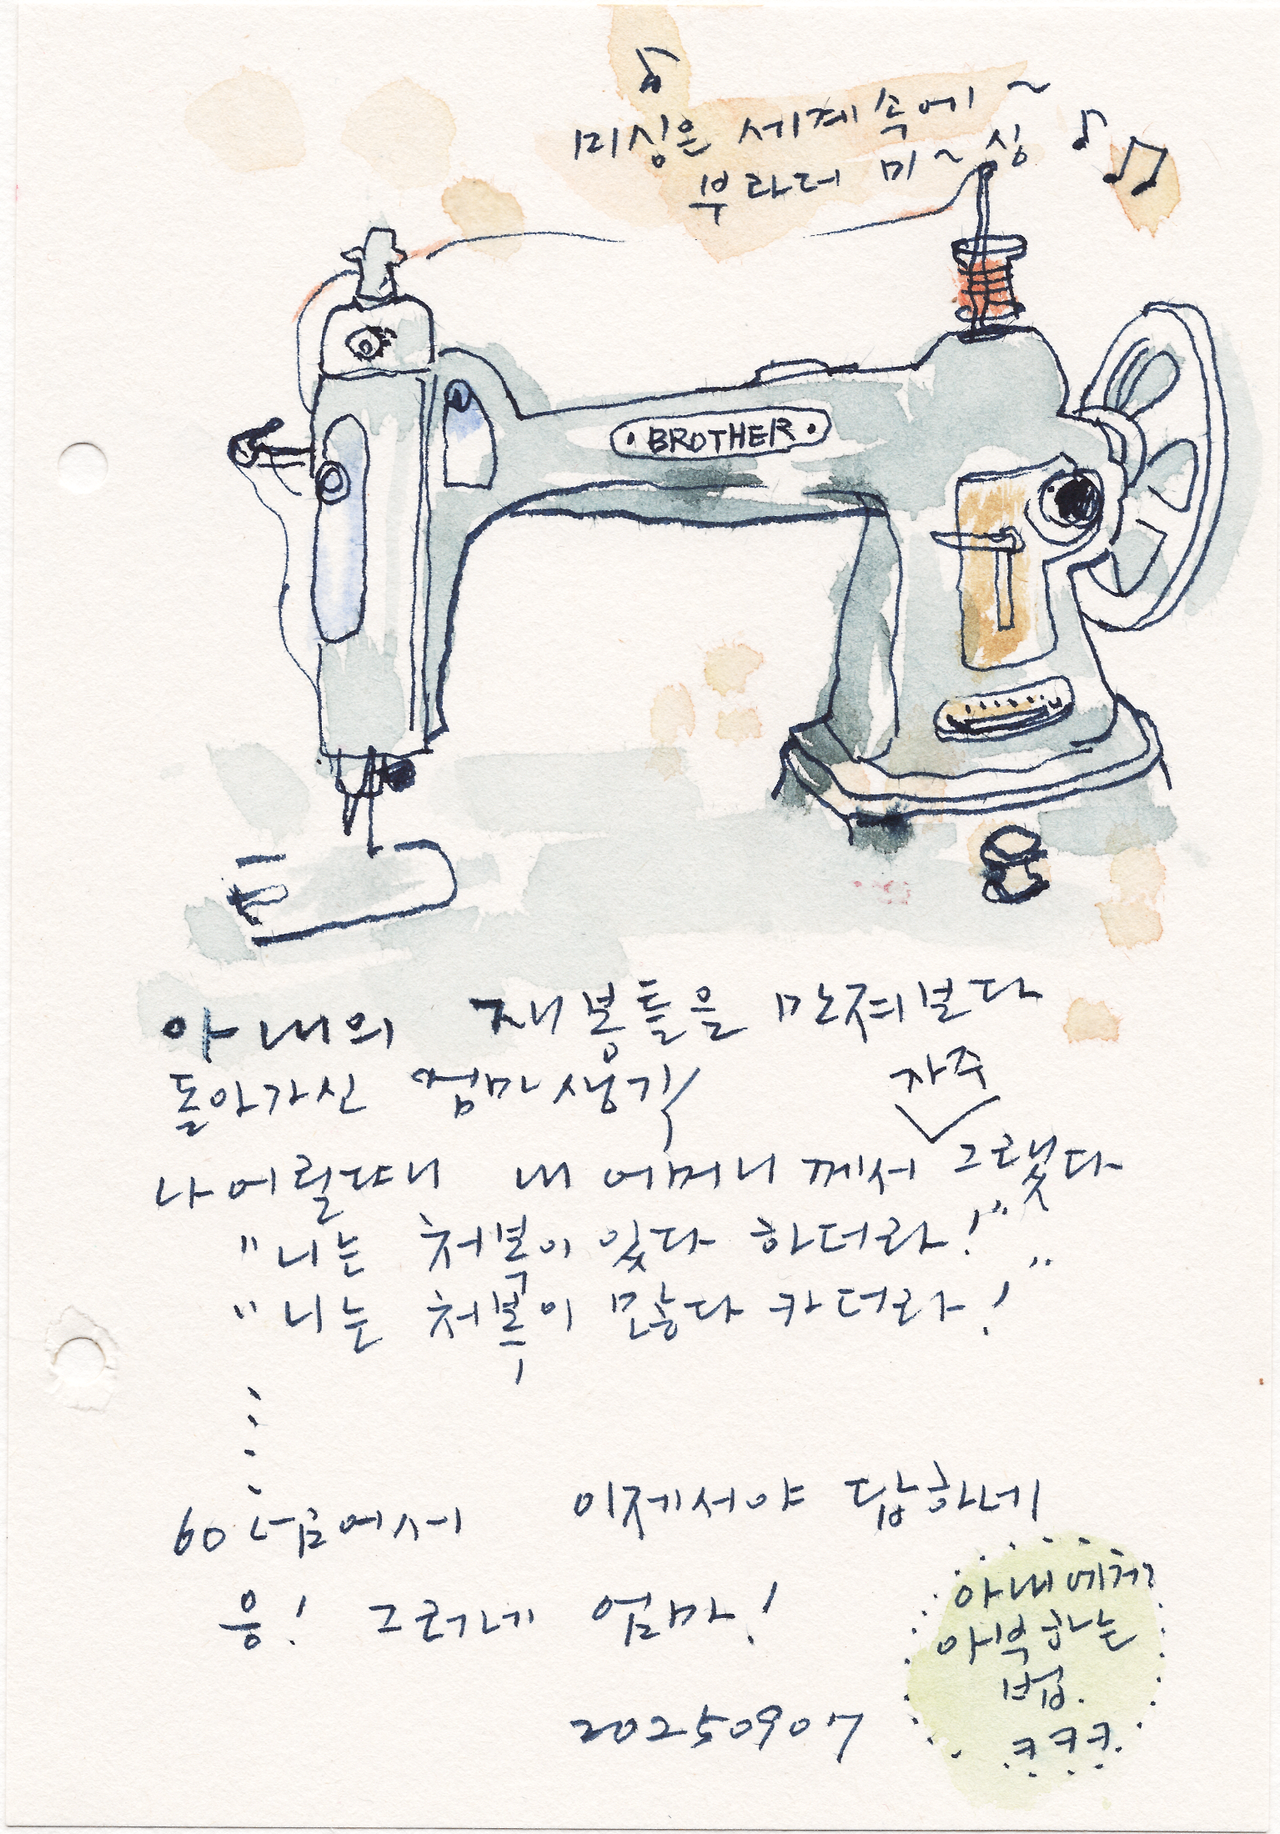 미싱은 세계 속에~
부라더 미~싱
BROTHER
아내의 재봉틀을 만져보다
돌아가신 엄마생각
자주
나 어릴다니 내 어머니 께서 그랬다
"니는 처복이 있다 하더라!"
"니는 처복이 많다 카더라!"
60 넘어서 이제서야 답하네
응! 그러네 엄마!
아내에게
아부하는
법.
ㅋㅋㅋ
20250907